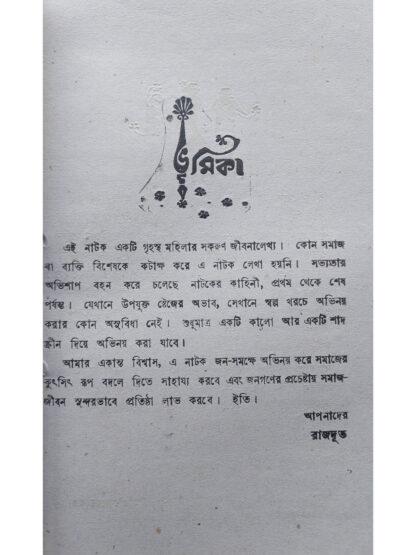 ভূমিকা
এই নাটক একটি গৃহস্থ মহিলার সকরুণ জীবনালেখ্য। কোন সমাজ
বা ব্যক্তি বিশেষকে কটাক্ষ করে এ নাটক লেখা হয়নি। সভ্যতার
অভিশাপ বহন করে চলেছে নাটকের কাহিনী, প্রথম থেকে শেষ
পর্যন্ত। যেখানে উপযুক্ত ষ্টেজের অভাব, সেখানে স্বল্প খরচে অভিনয়
করার কোন অসুবিধা নেই। শুধুমাত্র একটি কালো আর একটি শাদ
স্ক্রীন দিয়ে অভিনয় করা যাবে।
আমার একান্ত বিশ্বাস, এ নাটক জন-সমক্ষে অভিনয় করে সমাজের
কুৎসিৎ রূপ বদলে দিতে সাহায্য করবে এবং জনগণের প্রচেষ্টায় সমাজ-
জীবন সুন্দরভাবে প্রতিষ্ঠা লাভ করবে। ইতি।
আপনাদের
রাজদূত